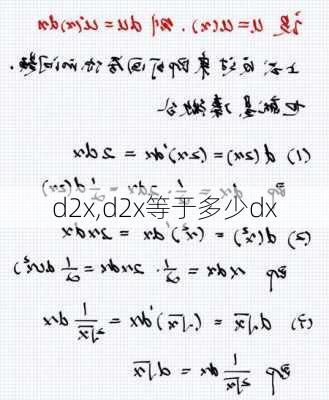 设 u = u(x). 则 du = u'(x)dx
即可回答你的问题.
也就是, 凑微分
(1) d(2x) = (2x)'dx = 2dx
即 dx = 1/2 · 2dx = 1/2 d(2x)
d2x,d2x等于多少dx
(2) d(x²) = (x²)'dx = 2xdx
即 xdx = 1/2 · 2xdx = 1/2 d(x²)
(3) d√x = (√x)'dx = 1/(2√x) dx
即 1/(2√x) dx = d√x